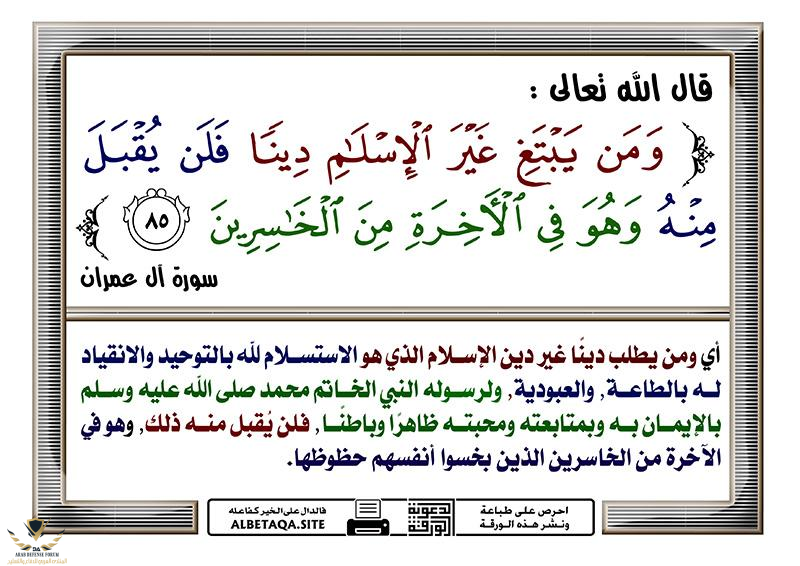 قال الله تعالى :
﴿ وَمَن يَبْتَغِ غَيْرَ ٱلْإِسْلَٰمِ دِينًا فَلَن يُقْبَلَ
مِنْهُ وَهُوَ فِي ٱلْأَخِرَةِ مِنَ ٱلْخَٰسِرِينَ ٨٥ ﴾
سورة آل عمران
أي ومن يطلب دينًا غير دين الإسلام الذي هو الاستسلام لله بالتوحيد والانقياد
له بالطاعة, والعبودية, ولرسوله النبي الخاتم محمد صلى الله عليه وسلم
بالإيمان به وبمتابعته ومحبته ظاهرًا وباطنًا, فلن يُقبل منه ذلك, وهو في
الآخرة من الخاسرين الذين بخسوا أنفسهم حظوظها.
احرص على طباعة
ونشر هذه الورقة
الدعوية
الورقة
فالدال على الخير كفاعله
ALBETAQA.SITE
ARAB DEFENSE FORUM